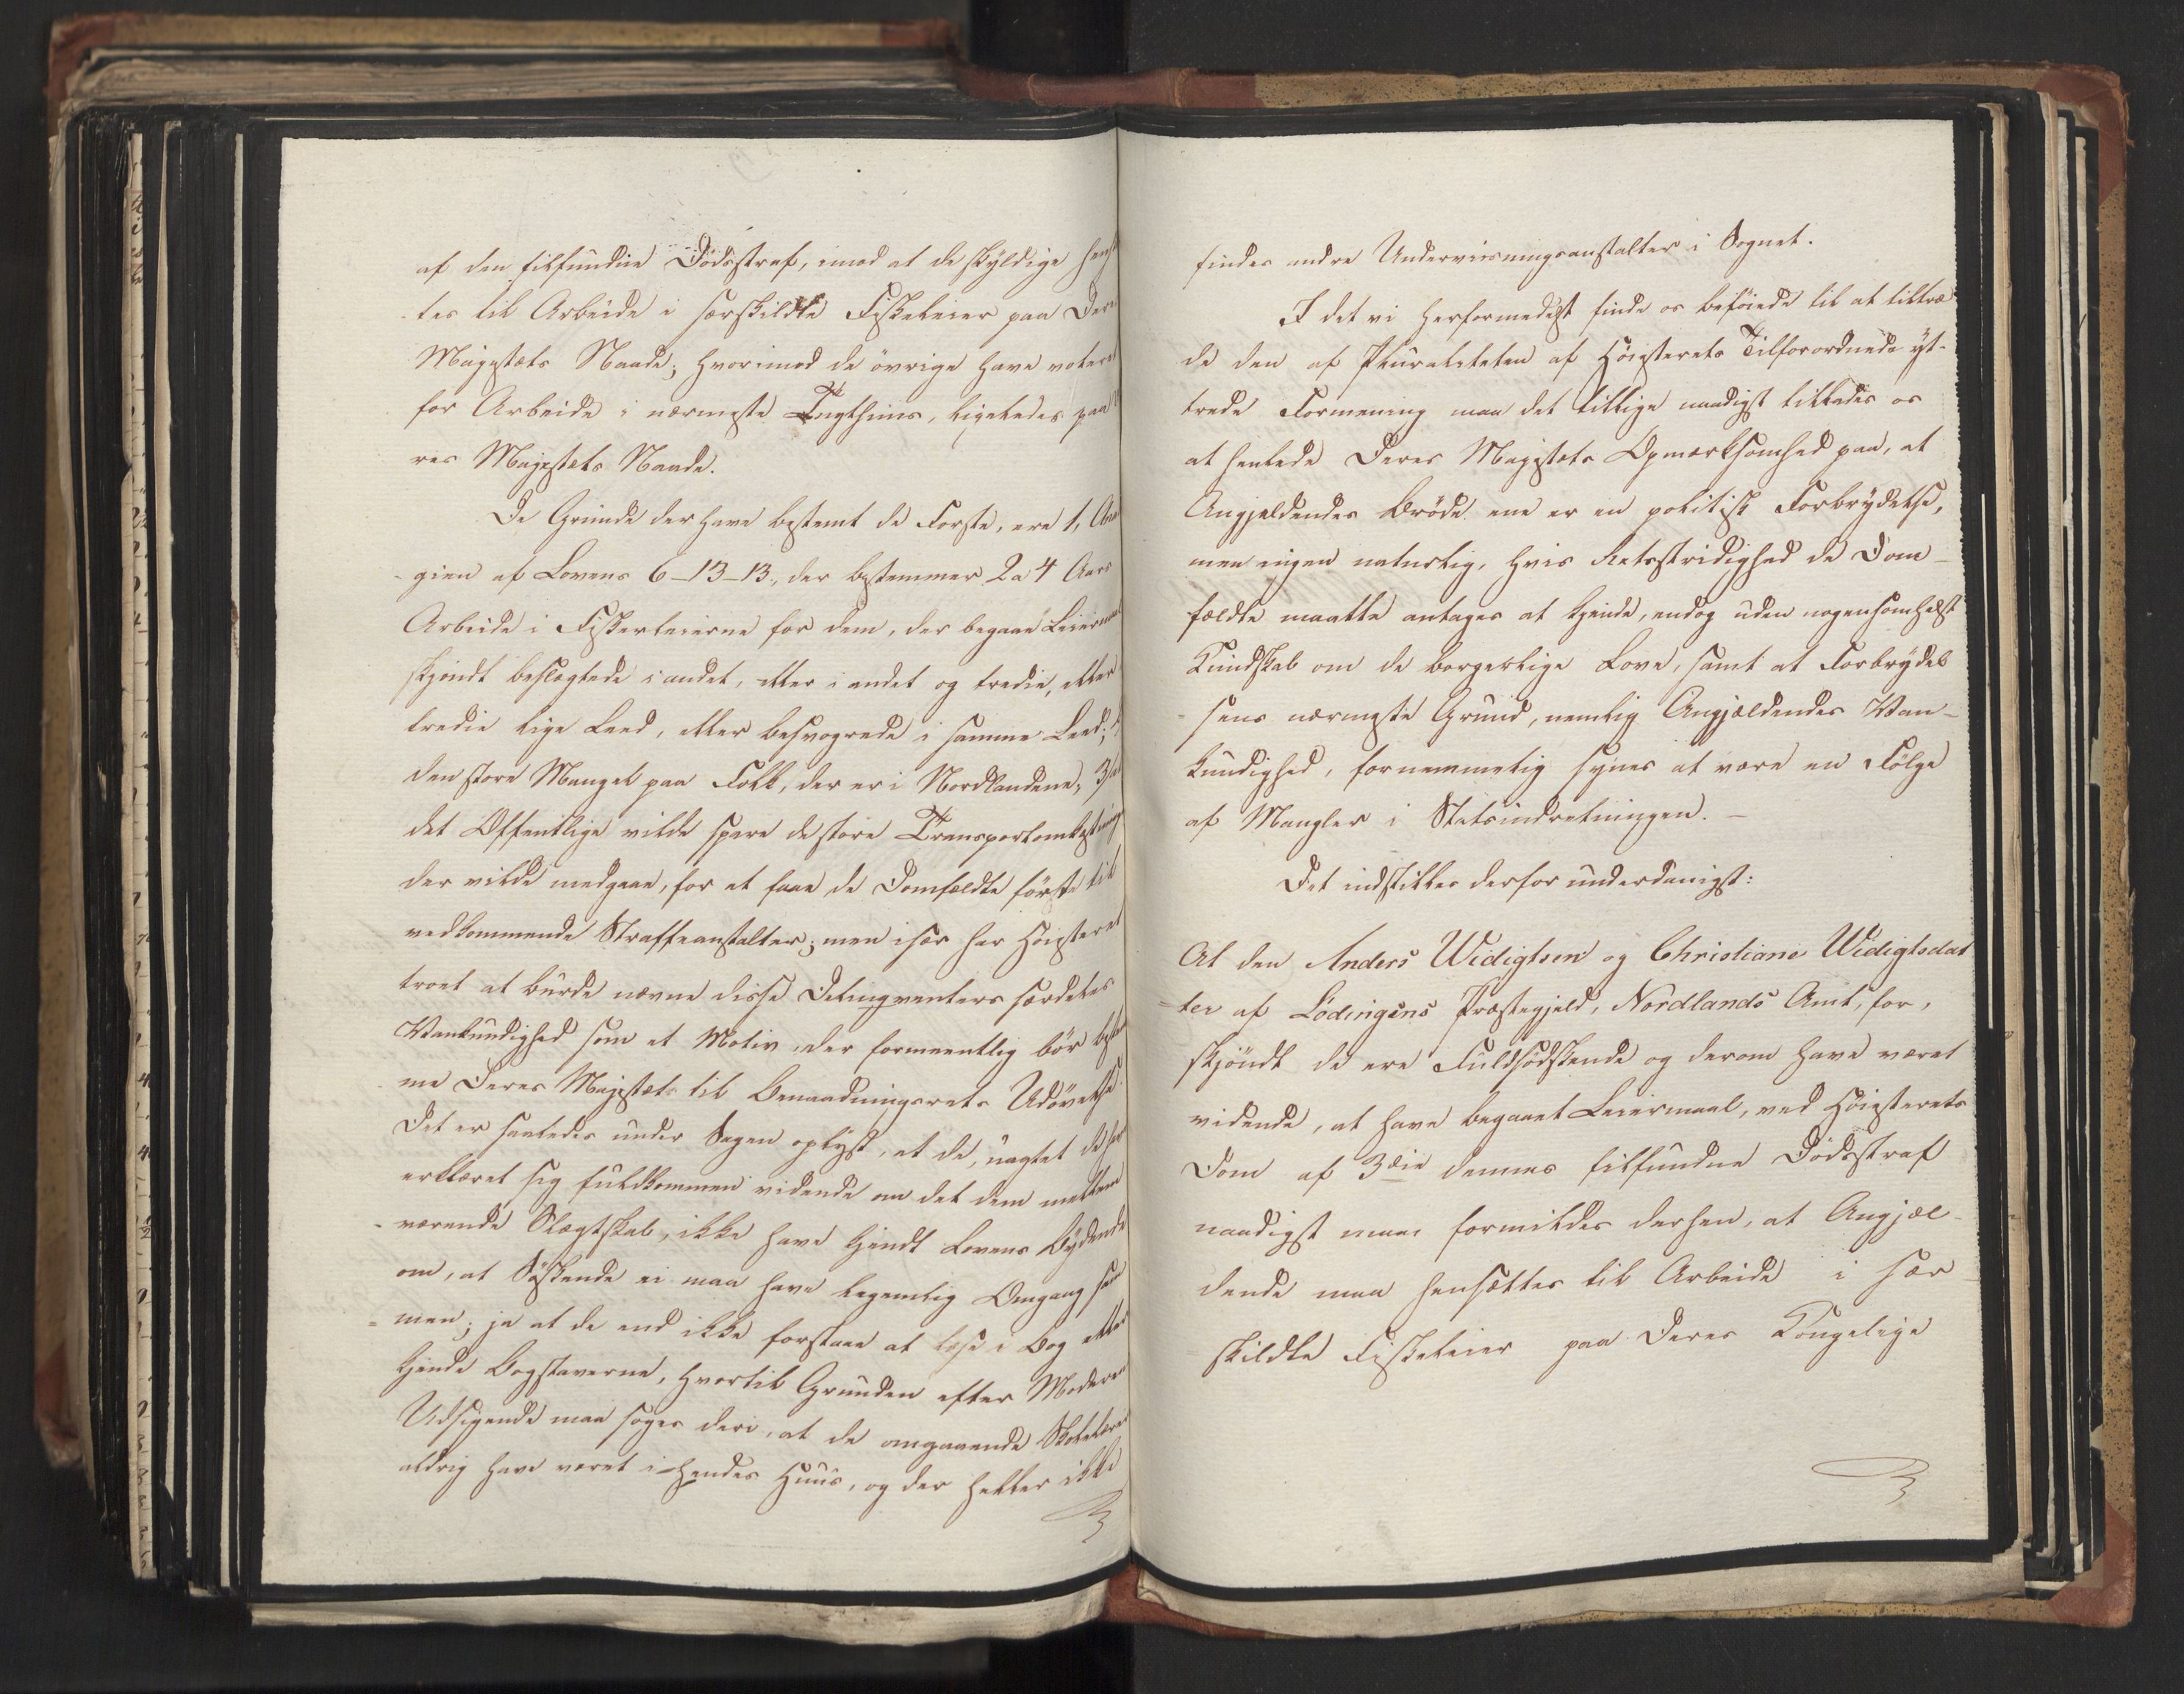 af den tilfundne Dödsstraf, imod at de skyldige hensæt
tes til Arbeide i særskildte Fiskeleier paa Deres
Majestæts Naade; hvorimod de övrige have voteret
for Arbeide i nærmeste Tugthuus, ligeledes paa De
res Majestæts Naade.
De Grunde der have bestemt de Forste, ere 1, Ana
gien af Lovens 6-13-13., der bestemmer 2 a 4 Aars
Arbeide i Fiskerleierne for dem, der begaae Leiermaal
skjöndt beslægtede i andet, eller i andet og tredie, eller
tredie lige Leed, eller besvogrede i samme Leed;
den store Mangel paa Folk, der er i Nordlandene, 3,
det Offentlige vilde spare de store Transportomkostninger
der vilde medgaae, for at faae de Domfældte förte til
vedkommende Straffeanstalter; men især har Höiesteret
troet at burde nævne disse Delinqventers særdeles
Vankundighed som et Motiv, der formeentlig bör bestem
me Deres Majestæt til Benaadningsrets Udövelse.
Det er saaledes under Sagen oplyst, at de, uagtet de har
erklæret sig fuldkommen vidende om det dem mellem
værende Slægtskab, ikke have kjendt Lovens Bydende
om, at Söskende ei maa have legemlig Omgang sam
men; ja at de end ikke forstaae at læse i Bog eller
kjende Bogstaverne, hvortil Grunden efter Moderens
Udsigende maa söges deri, at de omgaaende Skolelærere
aldrig have været i hendes Huus, og der heller ikke
findes andre Underviisningsanstalter i Sognet.
I det vi herformedelst finde os beföiede til at tiltræ
de den af Pluraliteten af Höiesterets Tilforordnede yt-
trede Formening maa det tillige naadigst tillades os
at henlede Deres Majestæts Opmærksomhed paa, at
Angjeldendes Bröde ene er en politisk Forbrydelse,
men ingen naturlig, hvis Retsstridighed de Dom-
fældte maatte antages at kjende, endog uden nogensomhelst
Kundskab om de borgerlige Love, samt at Forbrydel
sens nærmeste Grund, nemlig Angjældendes Van-
kundighed, fornemmelig synes at være en Fölge
af Mangler i Statsindretningen. -
Det indstilles derfor underdanigst:
At den Anders Widigtsen og Christiane Widigtsdat
ter af Lödingens Præstegjeld, Nordlands Amt, for,
skjöndt de ere Fuldsödskende og derom have været
vidende, at have begaaet Leiermaal, ved Höiesterets
Dom af 3die dennes tilfundne Dödsstraf
naadigst maa formildes derhen, at Angjæl-
dende maa hensættes til Arbeide i sær
skildte Fiskeleier paa Deres Kongelige